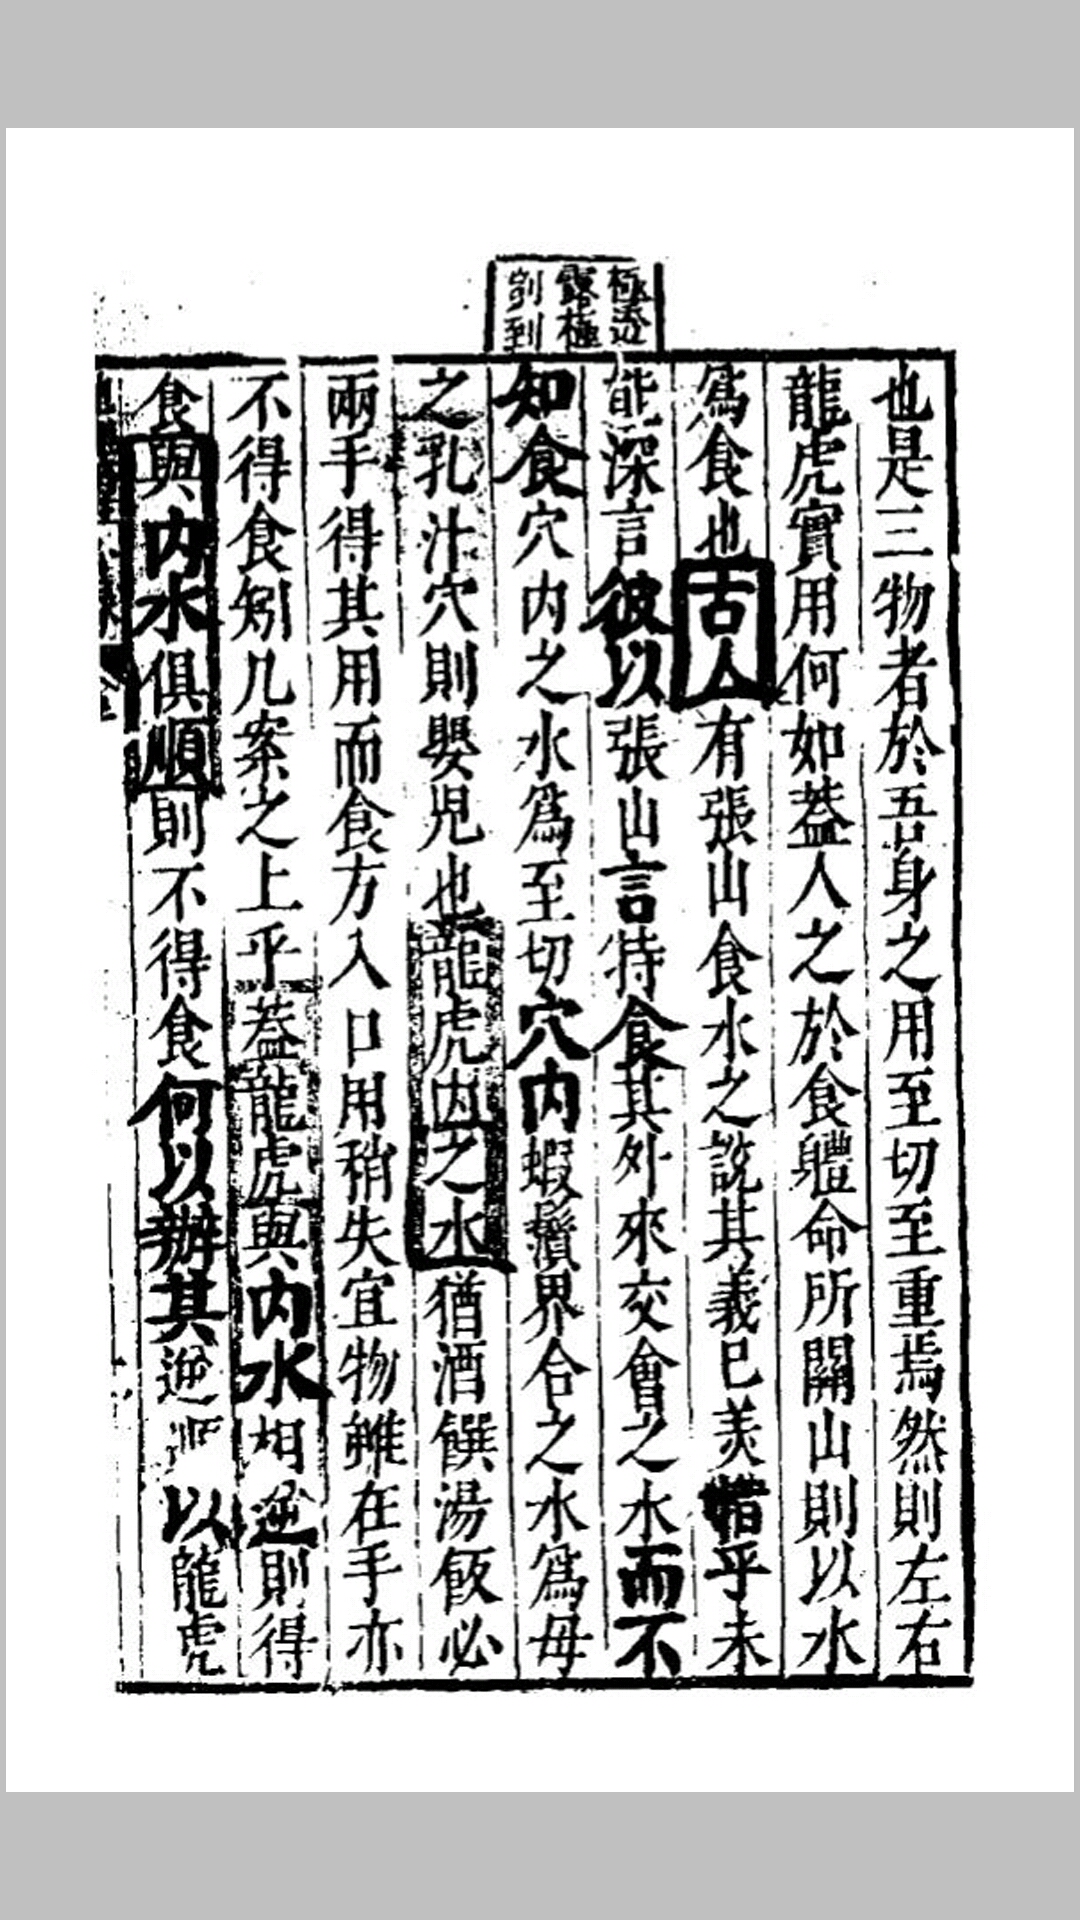 極透
露極
到
也是三物者於吾身之用至切至重焉然則左右
龍虎實用何如葢人之於食軆命所關山則以水
爲食也古人有張山食水之說其義已羙惜乎未
能深言彼以張山言特食其外來交會之水而不
知食穴内之水爲至切穴内蝦鬚界合之水爲母
之乳汁穴則嬰児也龍虎内之水猶酒饌湯飯必
兩手得其用而食方入口用稍失宜物雖在手亦
不得食矧几案之上乎葢龍虎與内水相逆則得
食與内水俱順則不得食何以辦其逆順以龍虎